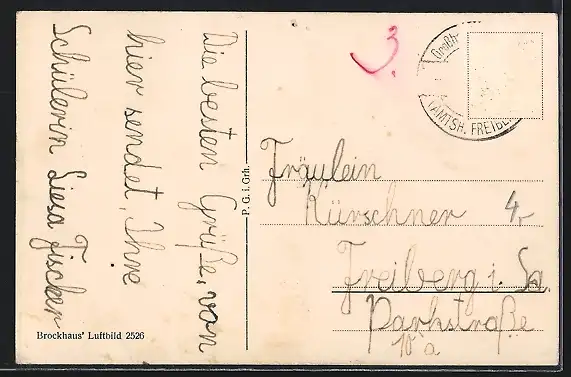 Die besten Grüße, von
hier sendet, Ihre
Schülerin Liesa Fischer
Brockhaus' Luftbild 2526
P. G. i. Grh.
3.
Großh
(AMTSH. FREIB
Fräulein
Kürschner
4,-
Freiberg i. Sa.
Parkstraße
10 a